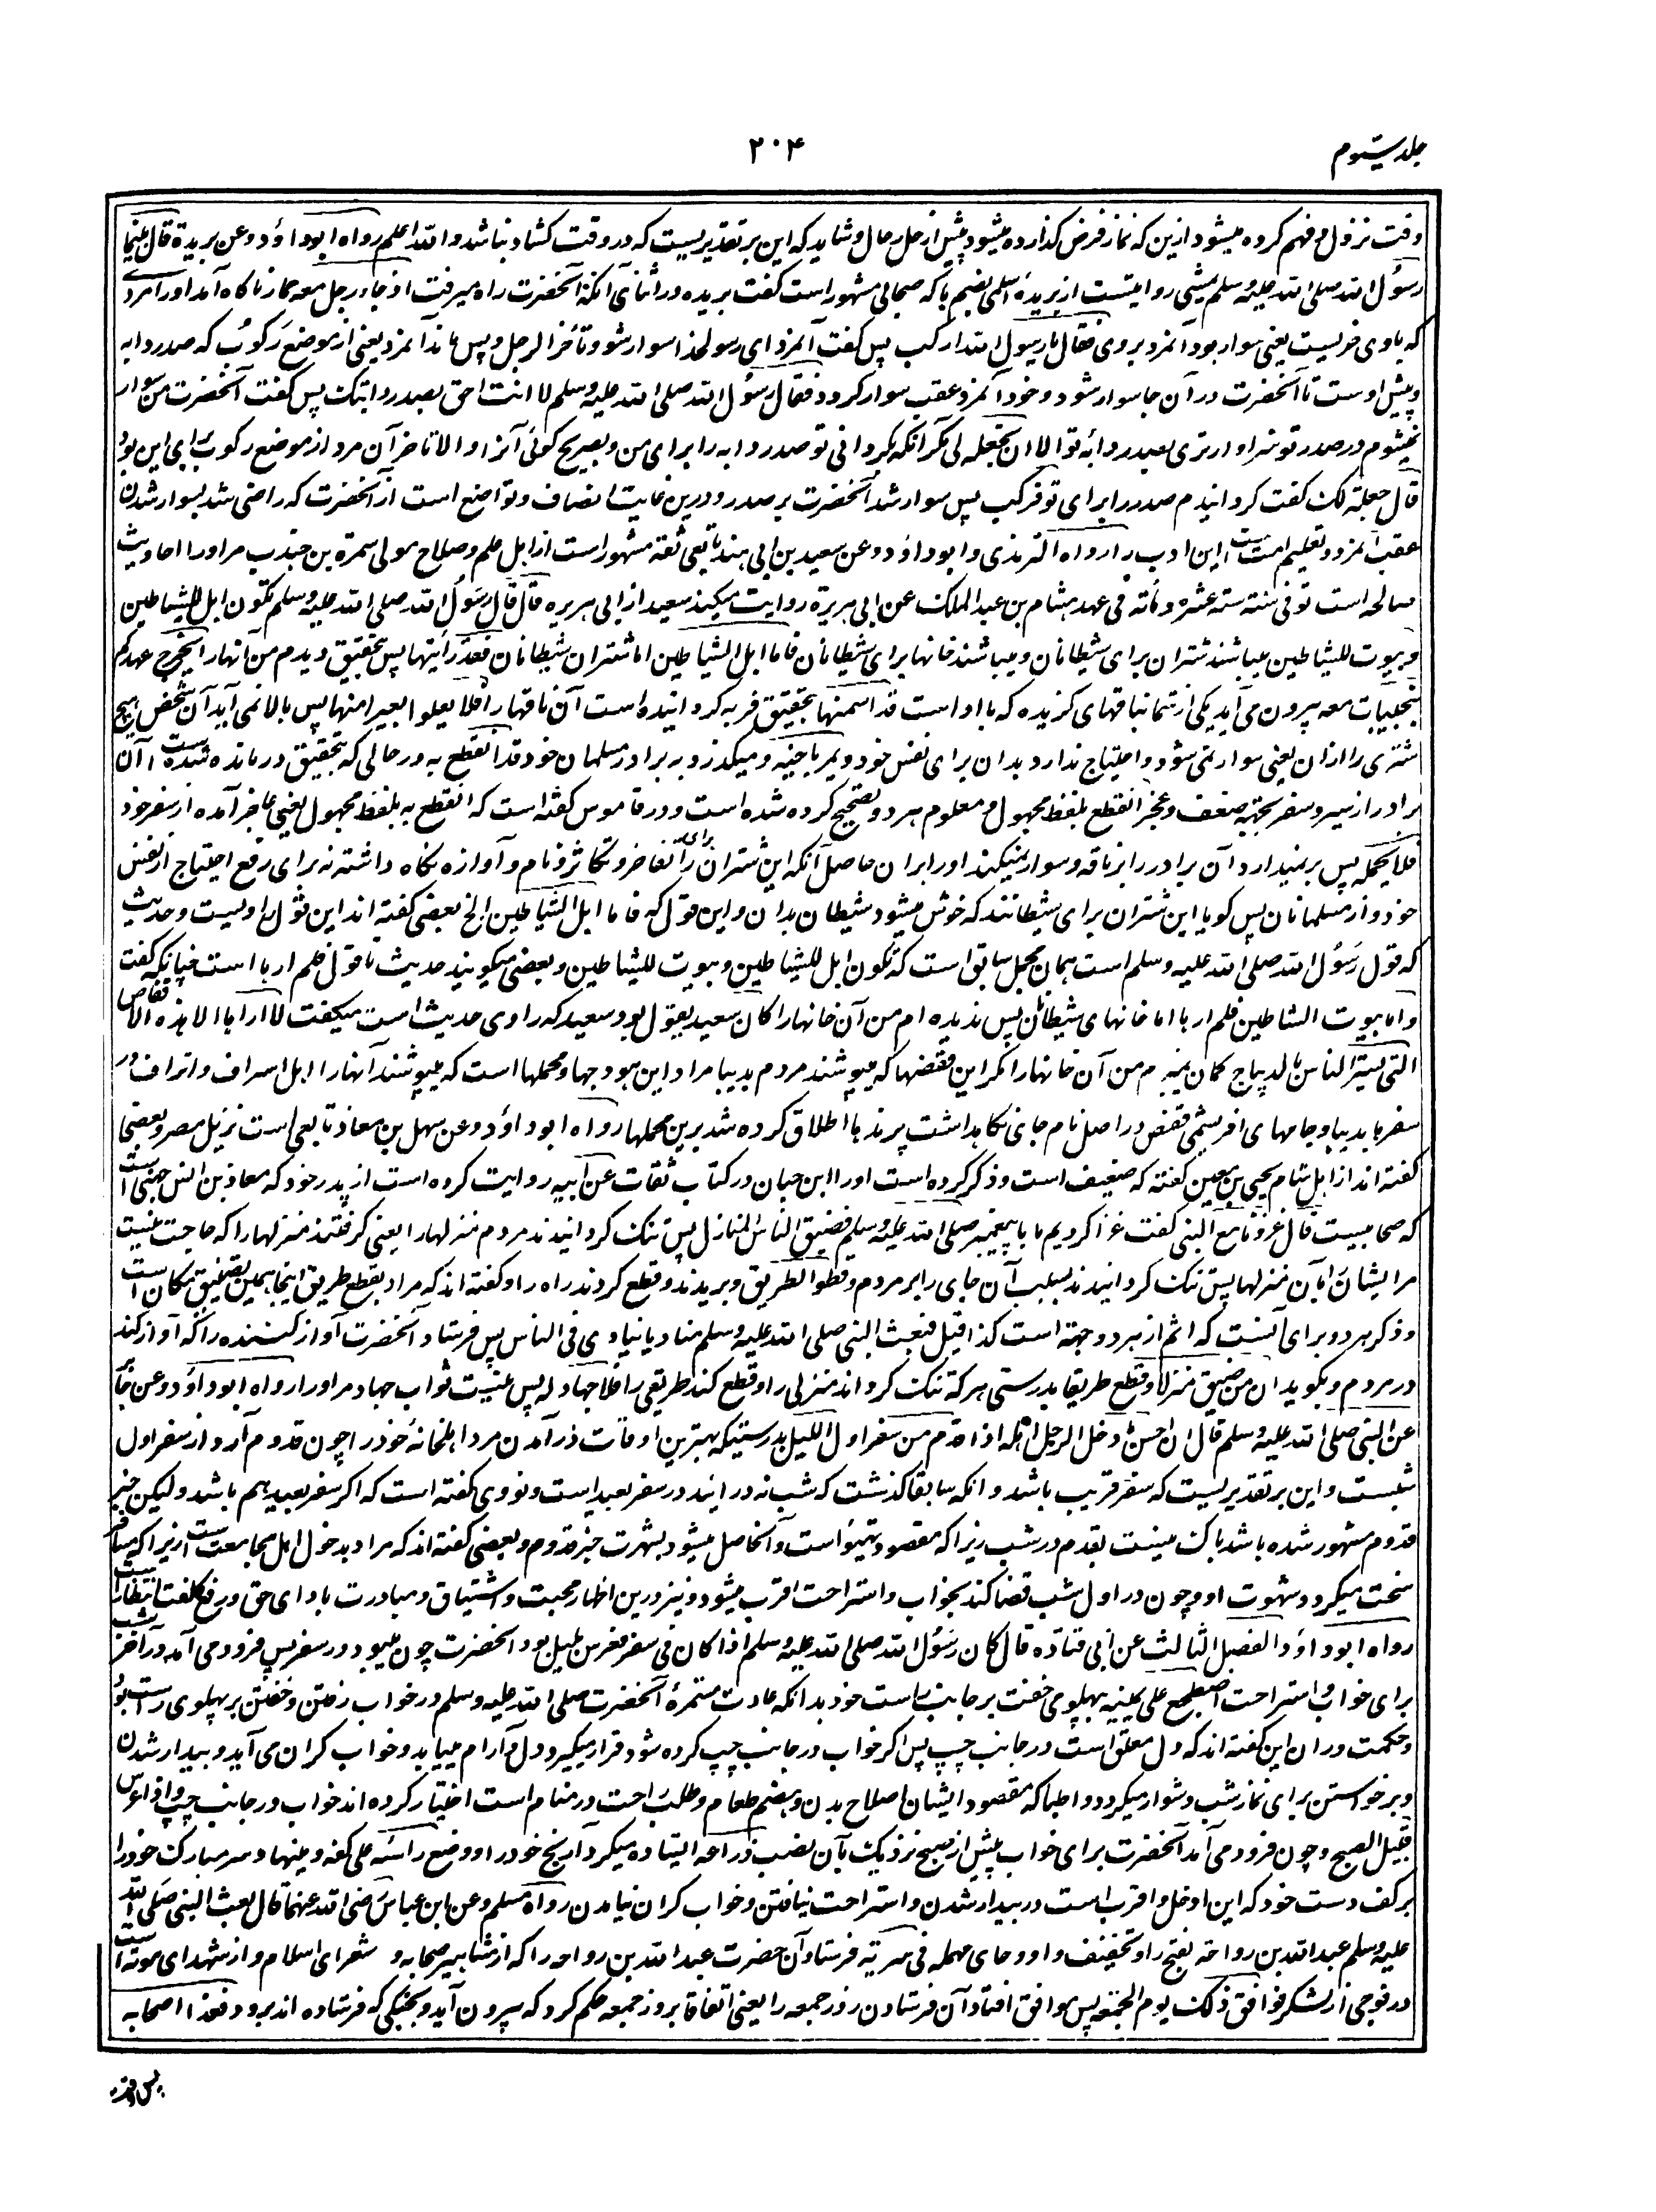 جلد سیوم
۲۰۴
وقت نزول و فهم کرده میشود ازین که نماز فرض گذارده میشود پیش از حل رحال و شاید که این بر تقدیریست که در وقت کشاد نباشد والله اعلم رواه ابوداؤد وعن بریدة قال بینما
رسول الله صلی الله علیه وسلم یمشی روایتست از بریدهٔ اسلمی بضم با که صحابی مشهور است گفت بریده در اثنای آنکه آنحضرت راه میرفت اذ جاءه رجل معه حمار ناگاه آمد او را مردی
که با وی خریست یعنی سوار بود آنمرد بر وی فقال یا رسول الله ارکب پس گفت آنمرد ای رسولخدا سوار شو وتأخر الرجل و پس ماند آنمرد یعنی از موضع رکوب که صدر دابه
و پیش اوست تا آنحضرت در آن جا سوار شود و خود آنمرد عقب سوار گردد فقال رسول الله صلی الله علیه وسلم لا انت احق بصدر دابتک پس گفت آنحضرت من سوار
نمیشوم در صدر تو سزاوارتری بصدر دابهٔ تو الا ان تجعله لی مگر آنکه بگردانی تو صدر دابه را برای من و بصریح گوئی آنرا و الا تاخر آن مرد از موضع رکوب برای این بود
قال جعلته لک گفت گردانیدم صدر را برای تو فرکب پس سوار شد آنحضرت بر صدر و درین غایت انصاف و تواضع است از آنحضرت که راضی شد بسوار شدن
عقب آنمرد و تعلیم امت است این ادب را رواه الترمذی وابوداؤد وعن سعید بن ابی هند تابعی ثقه مشهور است از اهل علم و صلاح مولی سمرة بن جندب مر او را احادیث
صالحه است توفی سنة ستة عشر ومأته فی عهد هشام بن عبد الملک عن ابی هریرة روایت میکند سعید از ابی هریره قال قال رسول الله صلی الله علیه وسلم تکون ابل للشیاطین
وبیوت للشیاطین میباشند شتران برای شیطانان و میباشند خانها برای شیطانان فاما ابل الشیاطین اما شتران شیطانان فقد رأیتها پس تحقیق دیدم من آنها را یخرج احدکم
بنجیبات معه بیرون می آید یکی از شما بناقهای گزیده که با او است قد اسمنها بتحقیق فربه گردانیده است آن ناقها را فلا یعلو البعیر امنها پس بالا نمی آید آن شخص هیچ
شتری را از ان یعنی سوار نمی شود و احتیاج ندارد بدان برای نفس خود ویمر باخیه و میگذرد به برادر مسلمان خود قد انقطع به در حالی که بتحقیق در مانده شده است آن
برادر از سیر و سفر بجهت ضعف و عجز انقطع بلفظ مجهول و معلوم هر دو تصحیح کرده شده است و در قاموس گفته است که انقطع به بلفظ مجهول یعنی عاجز آمده از سفر خود
فلا یحمله پس بر نمیدارد آن برادر را بر ناقه و سوار نمیکند او را بر ان حاصل آنکه این شتران را برای تفاخر و تکاثر و نام و آوازه نگاه داشته نه برای رفع احتیاج از نفس
خود و از مسلمانان پس گویا این شتران برای شیطانند که خوش میشود شیطان بدان و این قول که فاما ابل الشیاطین الخ بعضی گفته اند این قول راویست و حدیث
که قول رسول الله صلی الله علیه وسلم است همان مجمل سابق است که تکون ابل للشیاطین وبیوت للشیاطین و بعضی میگویند حدیث تا قول فلم ارها است چنانکه گفت
واما بیوت الشیاطین فلم ارها اما خانهای شیطانان پس ندیده ام من آن خانها را کان سعید یقول بود سعید که راوی حدیث است میگفت لا اراها الا هذه الاقفاص
التی یستر الناس بالدیباج گمان نمی برم من آن خانها را مگر این قفصها که میپوشند مردم بدیبا مراد این هودجها و محملها است که میپوشند آنها را اهل اسراف و اتراف در
سفر ها بدیبا و جامهای ابریشمی قفص در اصل نام جای نگاهداشت پرندها اطلاق کرده شد برین محملها رواه ابوداؤد وعن سهل بن معاذ تابعی است نزیل مصر و بعضی
گفته اند از اهل شام یحیی بن معین گفته که ضعیف است و ذکر کرده است او را ابن حبان در کتاب ثقات عن ابیه روایت کرده است از پدر خود که معاذ بن انس جهنی است
که صحابیست قال غزونا مع النبی گفت غزا کردیم ما با پیغمبر صلی الله علیه وسلم فضیق الناس المنازل پس تنگ گردانیدند مردم منزلها را یعنی گرفتند منزلها را که حاجت نیست
مر ایشان را بآن منزلها پس تنگ گردانیدند بسبب آن جای را بر مردم وقطعوا الطریق و بریدند و قطع کردند راه را و گفته اند که مراد بقطع طریق اینجا همین تضییق مکان است
و ذکر هر دو برای آنست که اثم از هر دو جهته است کذا قیل فبعث النبی صلی الله علیه وسلم منادیا ینادی فی الناس پس فرستاد آنحضرت آواز کننده را که آواز کند
در مردم و بگوید ان من ضیق منزلا او قطع طریقا بدرستی هر که تنگ گرداند منزلی را و قطع کند طریقی را فلا جهاد له پس نیست ثواب جهاد مر او را رواه ابوداؤد وعن جابر
عن النبی صلی الله علیه وسلم قال ان احسن ما دخل الرجل اهله اذا قدم من سفر اول اللیل بدرستیکه بهترین اوقات در آمدن مرد اهلخانهٔ خود را چون قدوم آرد از سفر اول
شبست و این بر تقدیریست که سفر قریب باشد و آنکه سابقا گذشت که شب نه در ایند در سفر بعید است و نووی گفته است که اگر سفر بعید هم باشد ولیکن خبر
قدوم مشهور شده باشد باک نیست بقدوم در شب زیرا که مقصود تهیؤ است و آن حاصل میشود بشهرت خبر قدوم و بعضی گفته اند که مراد بدخول اهل مجامعت است زیرا که مسافر
سخت میگردد شهوت او و چون در اول شب قضا کند بخواب و استراحت اقرب میشود و نیز درین اظهار محبت و اشتیاق و مبادرت بادای حق و رفع کلفت انتظار است
رواه ابوداؤد الفصل الثالث عن ابی قتاده قال کان رسول الله صلی الله علیه وسلم اذا کان فی سفر فعرس بلیل بود آنحضرت چون میبود در سفر پس فرود می آمد در آخر شب
برای خواب و استراحت اضطجع علی یمینه پهلو می خفت بر جانب راست خود بدانکه عادت مستمرهٔ آنحضرت صلی الله علیه وسلم در خواب رفتن و خفتن بر پهلوی راست بود
و حکمت در ان این گفته اند که دل معلق است در جانب چپ پس اگر خواب در جانب چپ کرده شود قرار میگیرد دل و آرام مییابد و خواب گران می آید و بیدار شدن
و برخواستن برای نماز شب دشوار میگردد و اطبا که مقصود ایشان اصلاح بدن و هضم طعام و طلب راحت در منام است اختیار کرده اند خواب در جانب چپ و اذا عرس
قبیل الصبح و چون فرود می آمد آنحضرت برای خواب پیش از صبح نزدیک بآن نصب ذراعه ایستاده میکرد آرنج خود را و وضع راسه علی کفه و مینهاد سر مبارک خود را
بر کف دست خود که این ادخل و اقرب است در بیدار شدن و استراحت نیافتن و خواب گران نیامدن رواه مسلم وعن ابن عباس رضی الله عنهما قال بعث النبی صلی الله
علیه وسلم عبد الله بن رواحة بفتح را و تخفیف واو و حای مهمله فی سریة فرستاد آن حضرت عبد الله بن رواحه را که از مشاهیر صحابه و شعرای اسلام و از شهدای موته است
در فوجی از لشکر فوافق ذلک یوم الجمعة پس موافق افتاد آن فرستادن روز جمعه را یعنی اتفاقا بروز جمعه حکم کرد که بیرون آید و بجنگی که فرستاده اند برود فغدا اصحابه